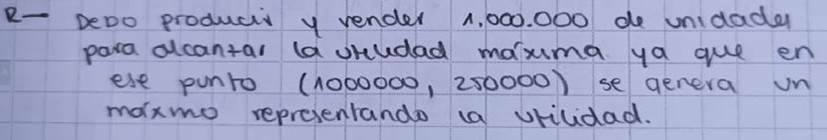 R— Debo producir y vender 1.000.000 de unidades
para alcantar la utilidad máxima ya que en
ese punto (1000000, 250000) se genera un
máxmo representando la utilidad.